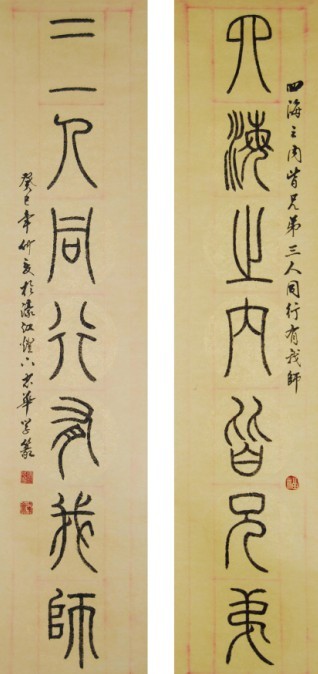 四海之内皆兄弟三人同行有我師
四海之内皆兄弟
三人同行有我師
癸巳年仲夏於濠江華學篆